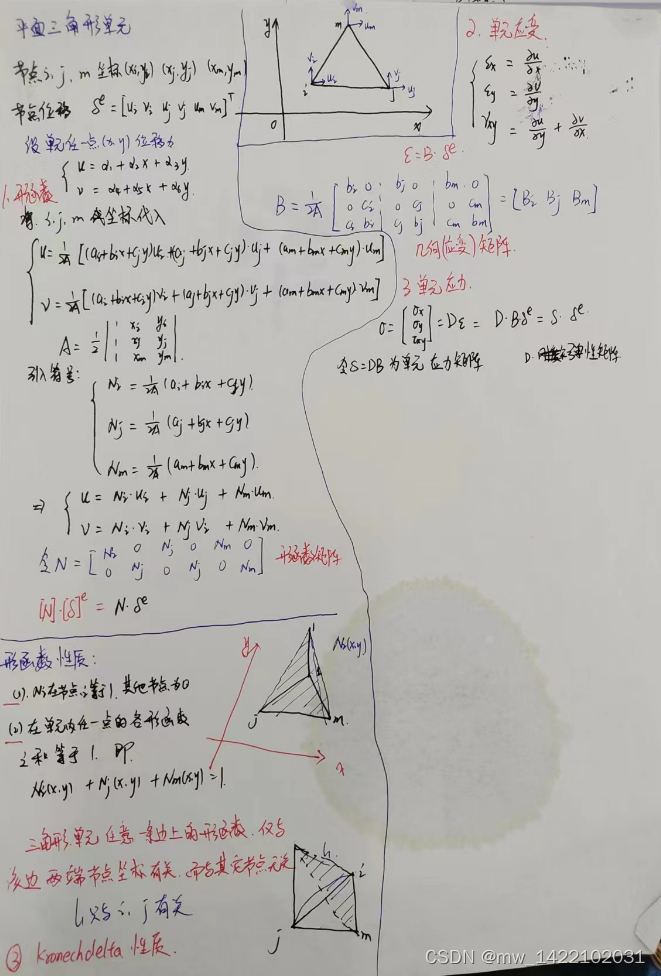 平面三角形单元
节点i, j, m 坐标(xi,yi) (xj,yj) (xm,ym)
节点位移 δᵉ = [ui vi uj vj um vm]ᵀ
设单元任一点(x,y)位移为
1.形函数
u = α1+α2x+α3y
v = α4+α5x+α6y
将 i, j, m 坐标代入
u = 1/2A [(ai+bix+ciy)ui+(aj+bjx+cjy)·uj+(am+bmx+cmy)·um]
v = 1/2A [(ai+bix+ciy)vi+(aj+bjx+cjy)·vj+(am+bmx+cmy)vm]
A = 1/2 | 1 xi yi
1 xj yj
1 xm ym |
引入符号:
Ni = 1/2A (ai+bix+ciy)
Nj = 1/2A (aj+bjx+cjy)
Nm = 1/2A (am+bmx+cmy).
⇒ u = Ni·ui + Nj·uj + Nm·um.
v = Ni·vi + Nj vi + Nm·vm.
令 N = [ Ni 0 Nj 0 Nm 0
0 Nj 0 Nj 0 Nm ] 形函数矩阵
[N]·[δ]ᵉ = N·δᵉ
y
x
0
i
j
m
vi
ui
vj
uj
vm
um
2. 单元应变.
εx = ∂u/∂x
εy = ∂v/∂y
γxy = ∂u/∂y + ∂v/∂x
ε = B·δᵉ
B = 1/2A [ bi 0 bj 0 bm 0
0 ci 0 cj 0 cm
ci bi cj bj cm bm ] = [Bi Bj Bm]
几何(应变)矩阵.
3 单元应力.
σ = [ σx
σy
τxy ] = Dε = D·Bδᵉ = S·δᵉ
令S=DB为单元应力矩阵
D. 弹性矩阵
形函数性质:
(1). Ni在节点i等于1, 其他节点为0
(2) 在单元内任一点的各形函数
之和等于1. 即.
Ni(x,y) + Nj(x,y) + Nm(x,y) = 1.
y
x
Ni(x,y)
1
i
j
m
三角形单元任意一条边上的形函数, 仅与
该边两端节点坐标有关, 而与其它节点无关
l1只与 i, j 有关
③ Kronechdelta 性质.
l1
i
j
m
CSDN @mw_1422102031